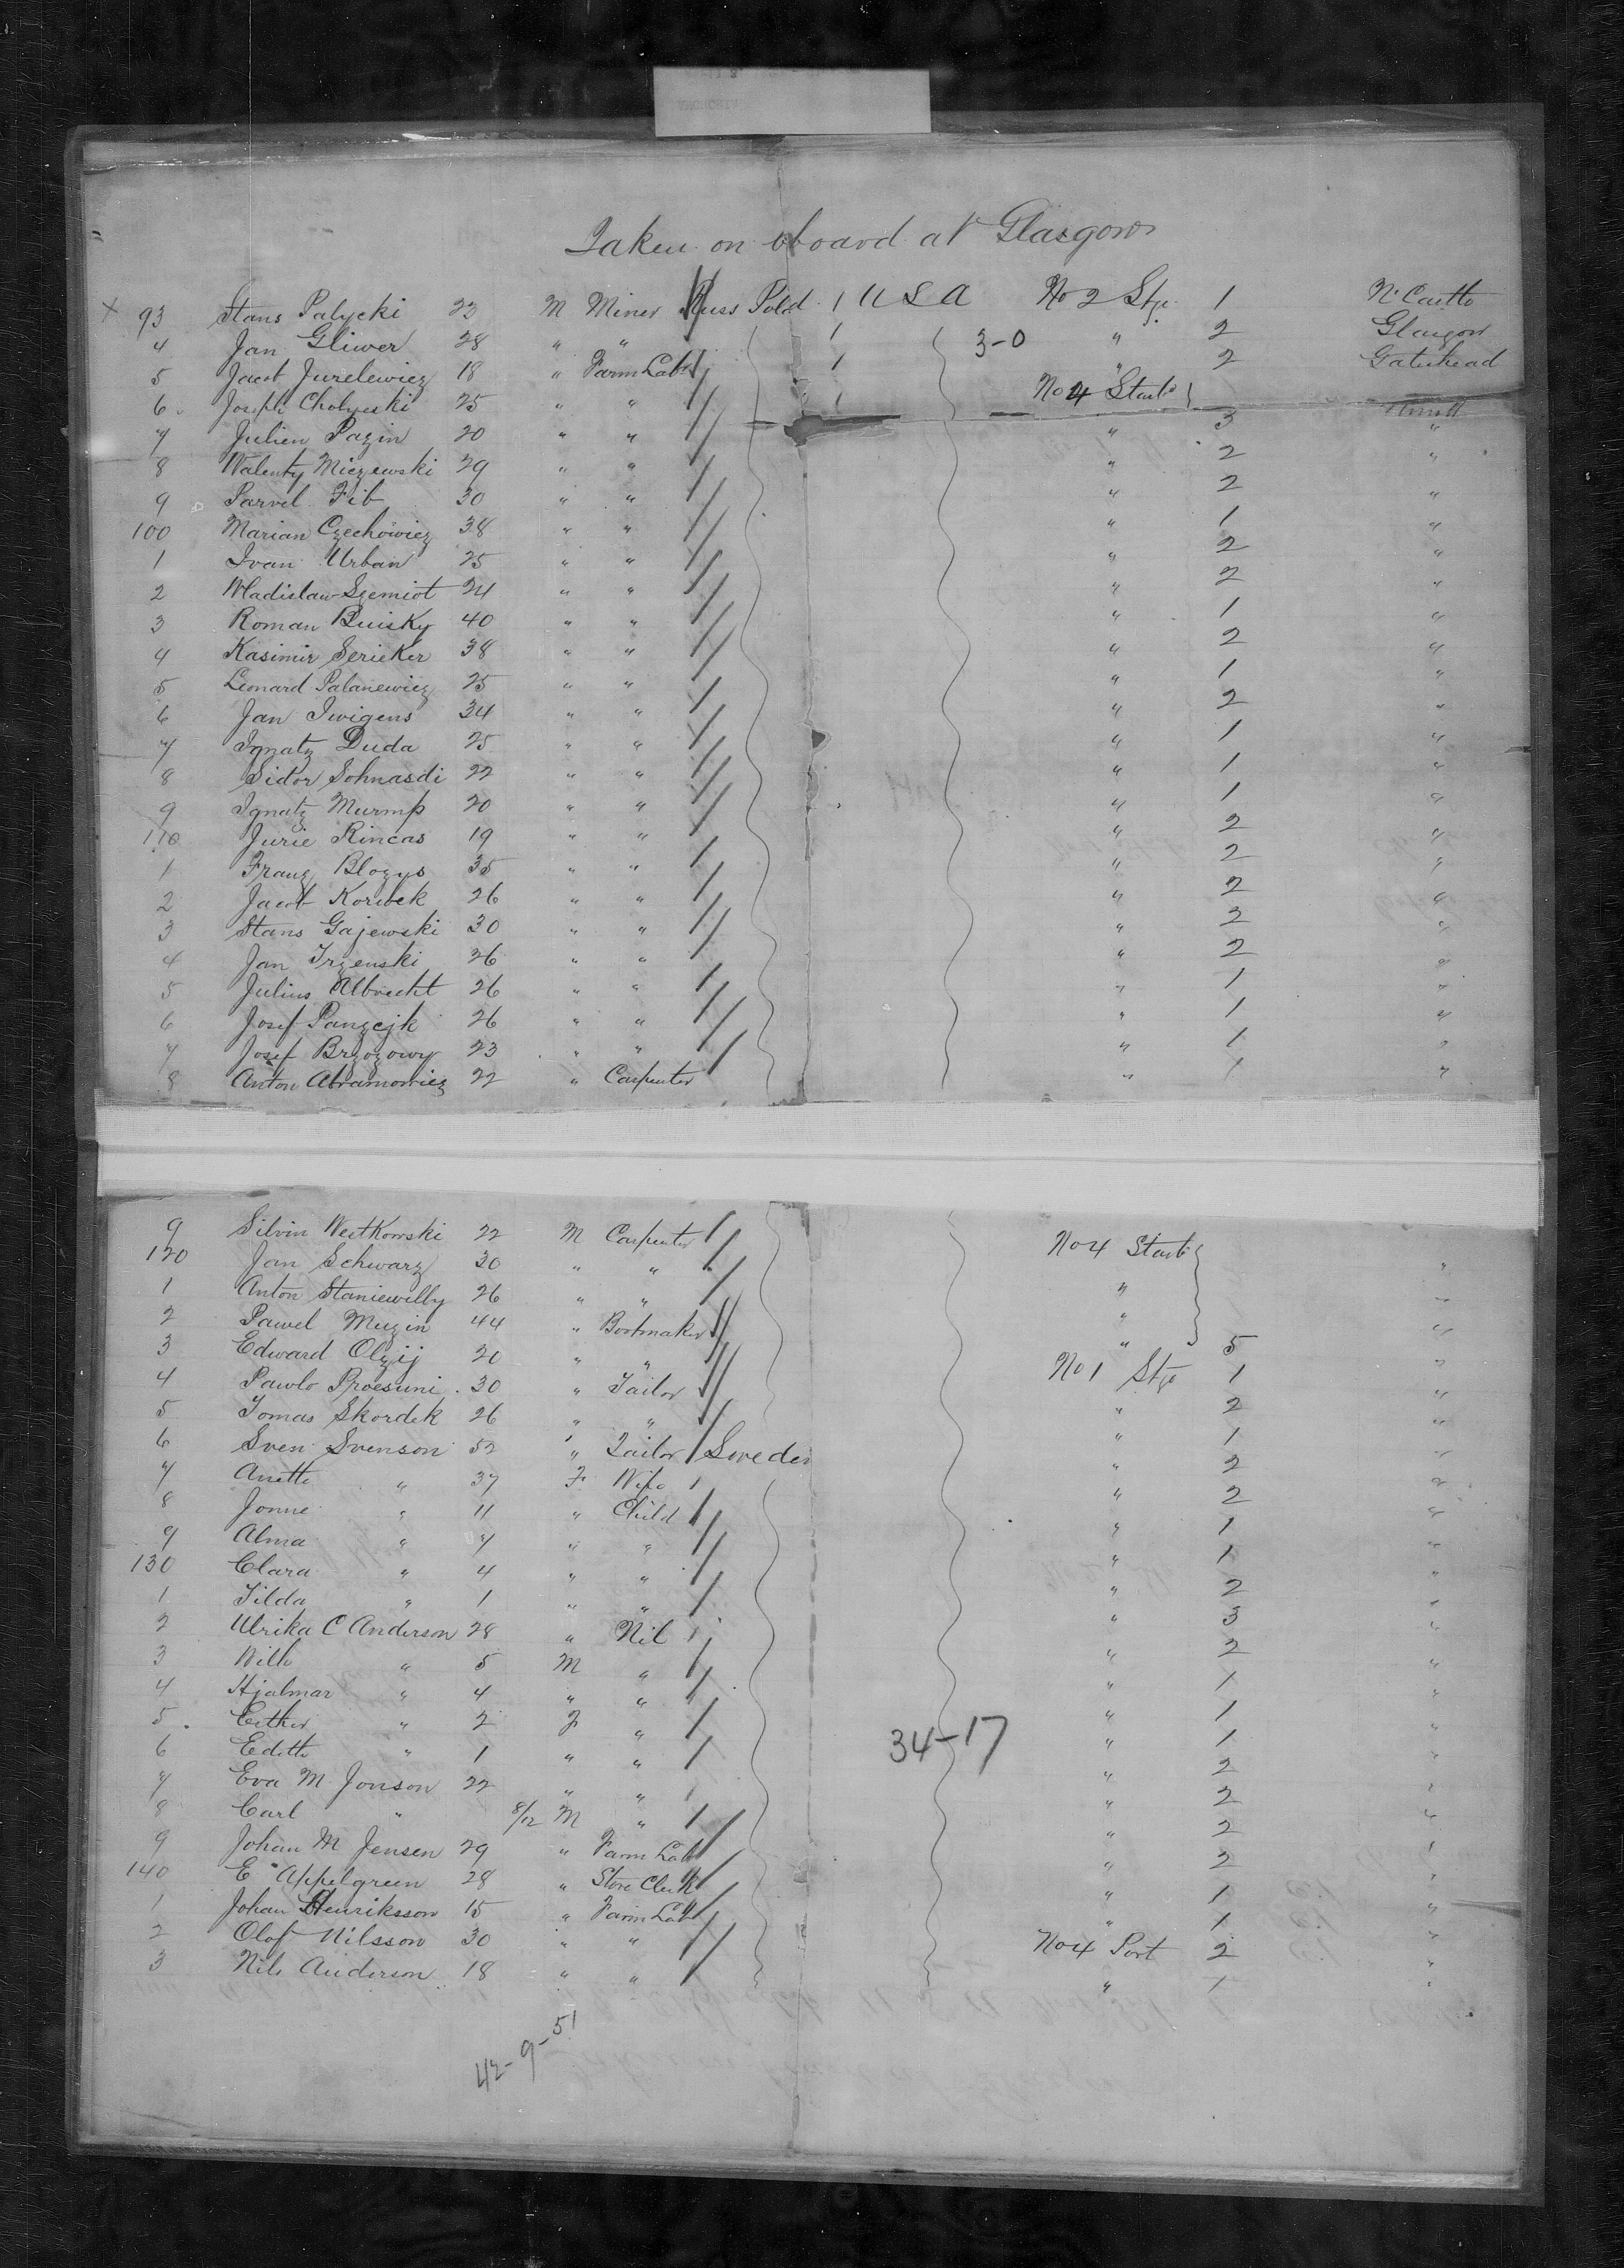 Taken on board at Glasgow
93 Stans Palycki 23 M Miner Russ Pold 1 U S A No 2 Stge 1 N. Castle
4 Jan Gliwer 28 " " 1 3-0 " 2 Glasgow
5 Jacob Jurelewicz 18 " Farm Labr 1 " 2 Gateshead
6 Joseph Cholyeski 25 " " 1 No 4 Starb
7 Julien Pazin 20 " " " 3 "
8 Walenty Miczewski 29 " " " 2 "
9 Parvel Fib 30 " " " 2 "
100 Marian Czechowicz 38 " " " 1 "
1 Ivan Urban 25 " " " 2 "
2 Wladislaw Szemiot 24 " " " 2 "
3 Roman Buisky 40 " " " 1 "
4 Kasimir Serieker 38 " " " 2 "
5 Leonard Palanewicz 25 " " " 1 "
6 Jan Iwigens 34 " " " 2 "
7 Ignatz Duda 25 " " " 1 "
8 Sidor Sohnasdi 22 " " " 1 "
9 Ignatz Murmp 20 " " " 1 "
110 Jurie Rincas 19 " " " 2 "
1 Franz Blozys 35 " " " 2 "
2 Jacob Korwek 26 " " " 2 "
3 Stans Gajewski 30 " " " 2 "
4 Jan Irzenski 26 " " " 2 "
5 Julius Albrecht 26 " " " 1 "
6 Josef Panzejk 26 " " " 1 "
7 Josef Brzozowy 23 " " " 1 "
8 Anton Abramowicz 22 " Carpenter " 1 "
9 Silvin Weitkowski 22 M Carpenter No 4 Starb
120 Jan Schwarz 30 " " "
1 Anton Staniewilly 26 " " "
2 Pawel Muzin 44 " Bootmaker "
3 Edward Olzij 20 " " 5 "
4 Pawlo Proesuni 30 " Tailor No 1 Stge 1 "
5 Tomas Skordek 26 " " " 2 "
6 Sven Svenson 52 " Tailor Sweden " 1 "
7 Anette " 37 F Wife " 2 "
8 Jonne " 11 " Child " 2 "
9 Alma " 7 " " " 1 "
130 Clara " 4 " " " 1 "
1 Tilda " 1 " " " 2 "
2 Ulrika C Anderson 28 " Nil " 3 "
3 Wilh " 5 M " " 2 "
4 Hjalmar " 4 " " " 1 "
5 Esther " 2 F " " 1 "
6 Edith " 1 " " 34-17 " 1 "
7 Eva M Jonson 22 " " " 2 "
8 Carl " 8/12 M " " 2 "
9 Johan M Jensen 29 " Farm Labr " 2 "
140 E Appelgreen 28 " Store Clerk " 2 "
1 Johan Henriksson 15 " Farm Labr " 1 "
2 Olof Nilsson 30 " " " 1 "
3 Nils Anderson 18 " " No 4 Port 2 "
" 1 "
42-9-51